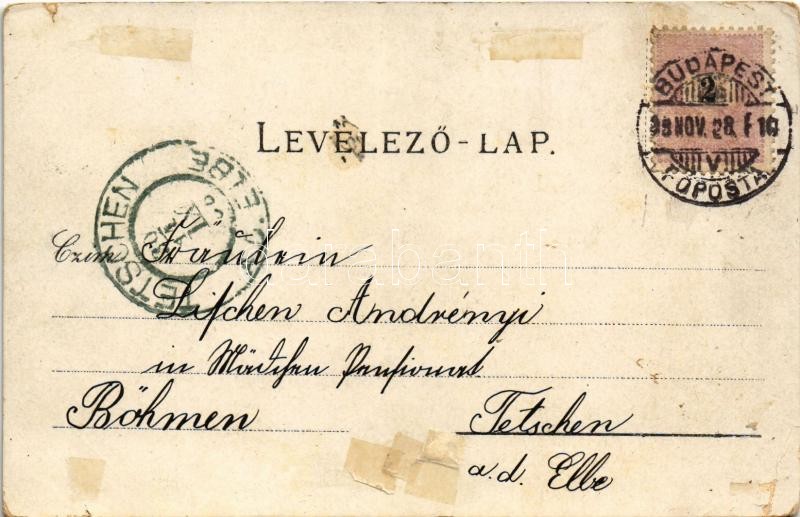 BUDAPEST
2
99 NOV. 28. F 10
V
FŐPOSTA
LEVELEZŐ-LAP.
TETSCHEN A. D. ELBE
Czim Fräulein
Lischen Andrényi
in Mädchen Pensionat
Böhmen Tetschen
a. d. Elbe
darabanth